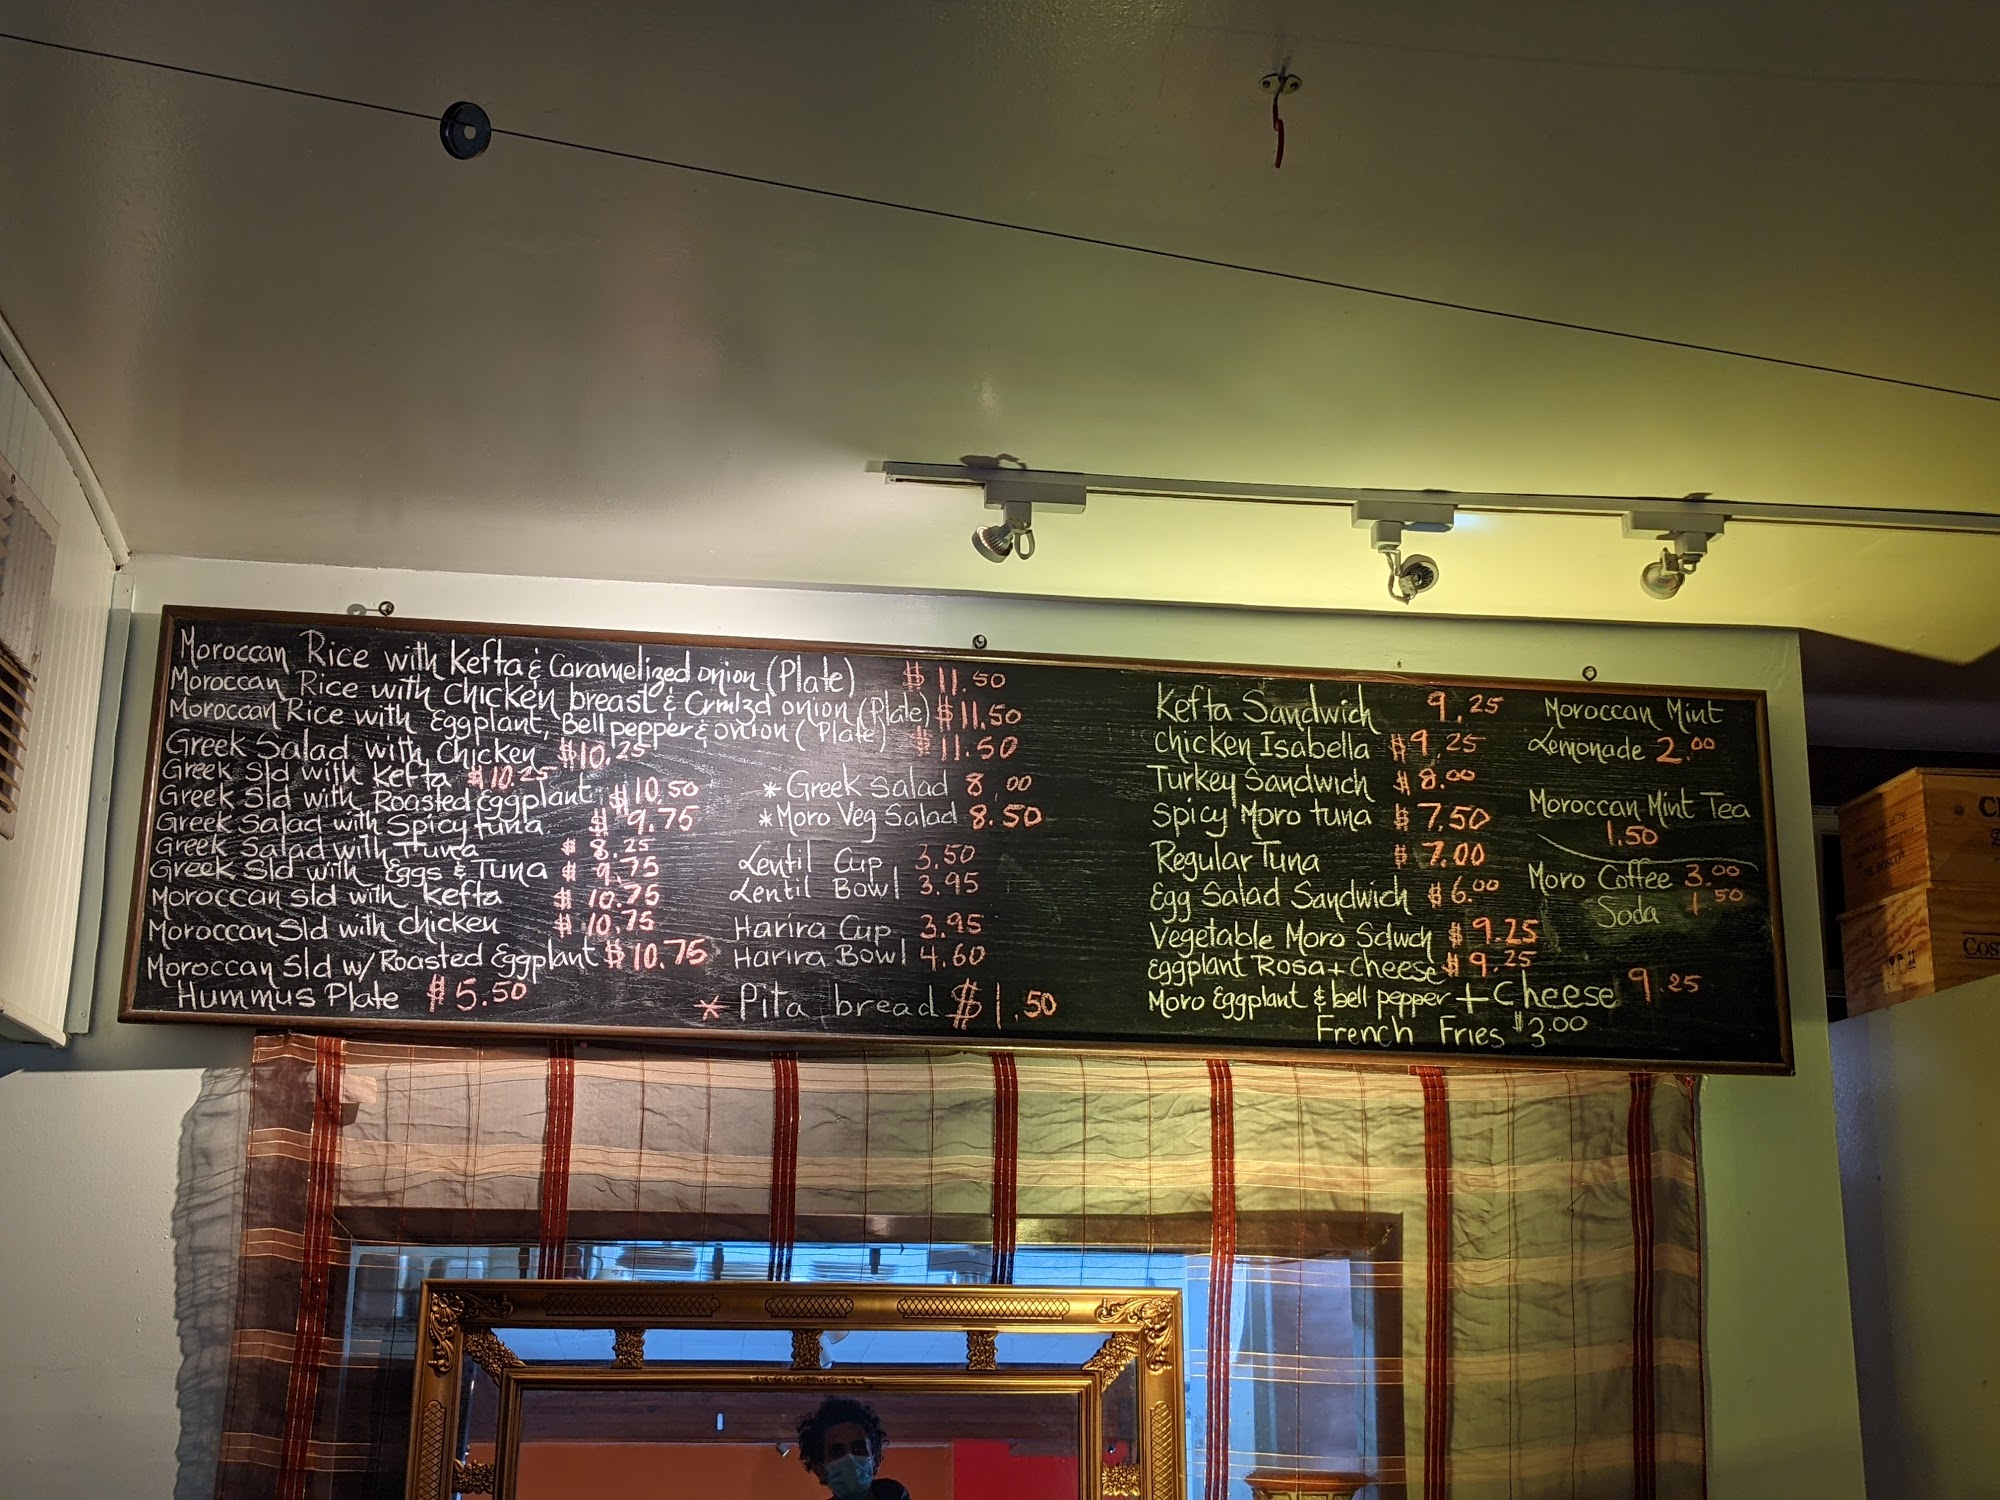 Moroccan Rice with Kefta & Caramelized onion (Plate) $11.50
Moroccan Rice with chicken breast & Crmlzd onion (Plate) $11.50
Moroccan Rice with Eggplant, Bell pepper & onion (Plate) $11.50
Greek Salad with Chicken $10.25
Greek Sld with Kefta $10.25
Greek Sld with Roasted Eggplant $10.50
Greek Salad with Spicy tuna $9.75
Greek Salad with Tuna $8.25
Greek Sld with Eggs & Tuna $9.75
Moroccan Sld with Kefta $10.75
Moroccan Sld with chicken $10.75
Moroccan Sld w/ Roasted Eggplant $10.75
Hummus Plate $5.50
*Greek Salad 8.00
*Moro Veg Salad 8.50
Lentil Cup 3.50
Lentil Bowl 3.95
Harira Cup 3.95
Harira Bowl 4.60
* Pita bread $1.50
Kefta Sandwich 9.25
Chicken Isabella $9.25
Turkey Sandwich $8.00
Spicy Moro tuna $7.50
Regular Tuna $7.00
Egg Salad Sandwich $6.00
Vegetable Moro Sdwch $9.25
Eggplant Rosa + cheese $9.25
Moro Eggplant & bell pepper + Cheese 9.25
French Fries $3.00
Moroccan Mint
Lemonade 2.00
Moroccan Mint Tea
1.50
Moro Coffee 3.00
Soda 1.50